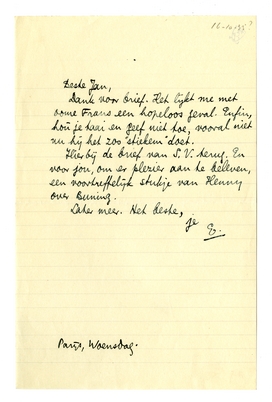 16-10-35?
Beste Jan,
Dank voor brief. Het lijkt me met
oome Frans een hopeloos geval. Enfin,
hou je taai en geef niet toe, vooral niet
nu hij het zoo stiekem doet.
Hierbij de brief van S.V. terug. En
voor jou, om er plezier aan te beleven,
een voortreffelijk stukje van Henny
over Buning.
Later meer. Het beste,
je
E.
Parijs, Woensdag.